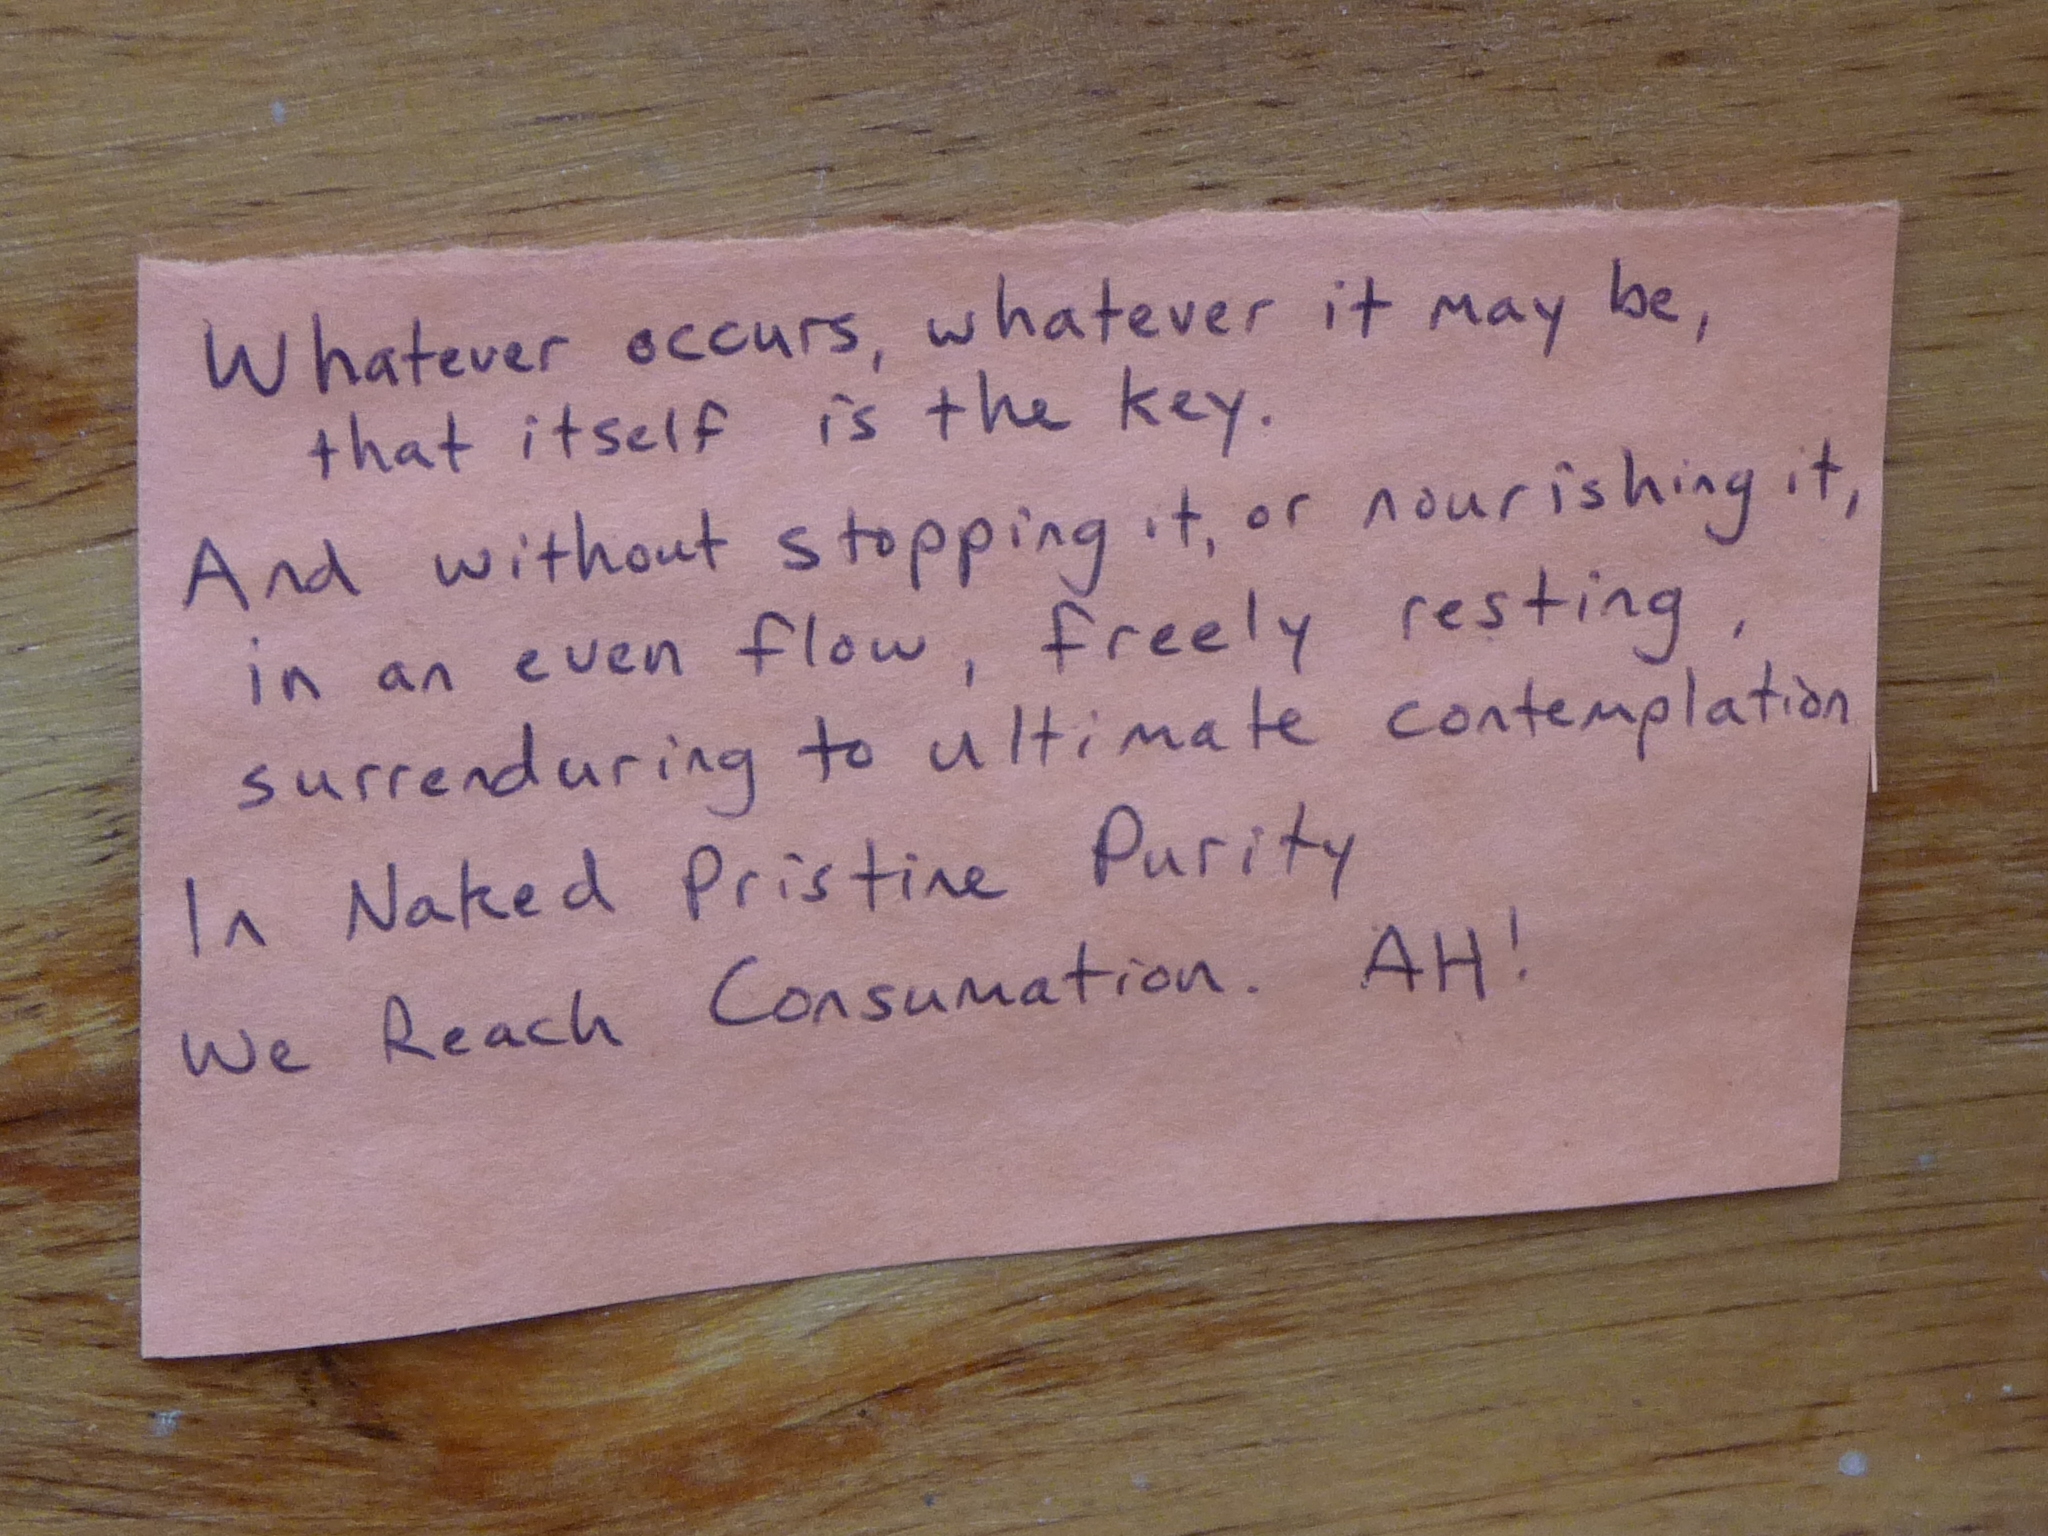 Whatever occurs, whatever it may be,
that itself is the key.
And without stopping it, or nourishing it,
in an even flow, freely resting,
surrenduring to ultimate contemplation
In Naked Pristine Purity
We Reach Consumation. AH!